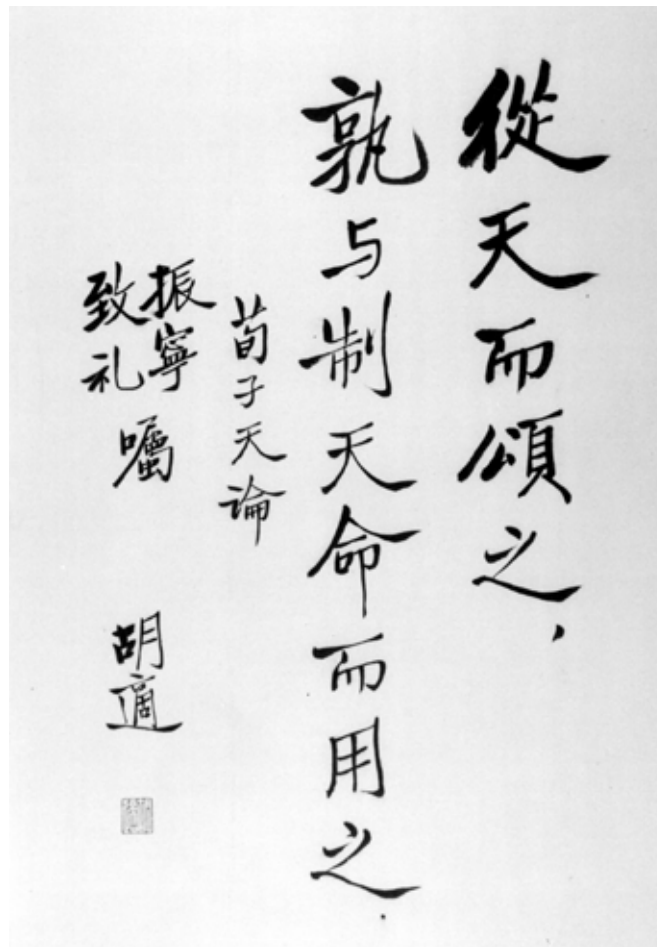 從天而頌之，
孰与制天命而用之．
荀子天論
振寧
致礼
囑
胡適